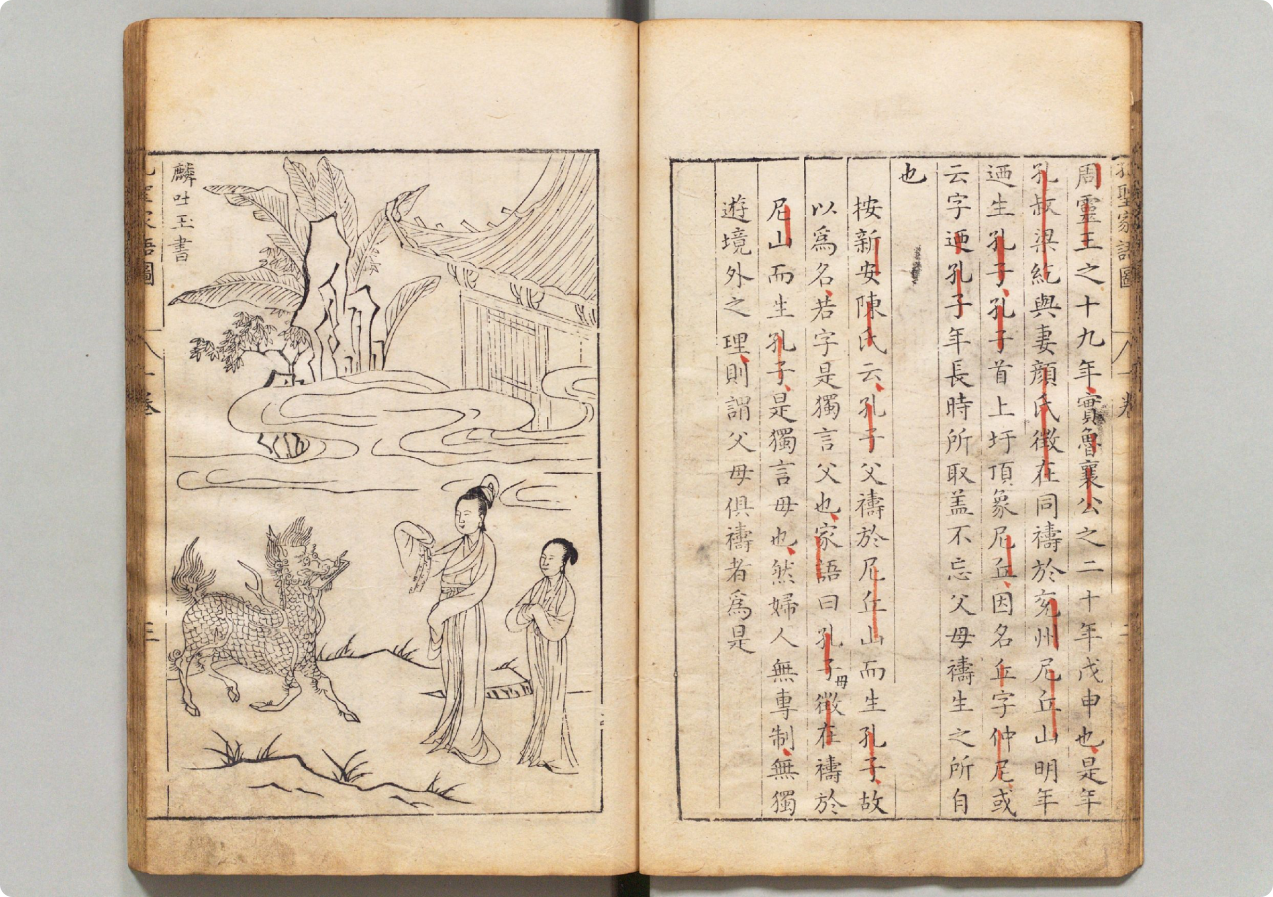 孔聖家語圖 一卷
周靈王之十九年實魯襄公之二十年戊申也是年
孔叔梁紇與妻顏氏徵在同禱於兖州尼丘山明年
迺生孔子孔子首上圩頂象尼丘因名丘字仲尼或
云字迺孔子年長時所取盖不忘父母禱生之所自
也
按新安陳氏云孔子父禱於尼丘山而生孔子故
以爲名若字是獨言父也家語曰孔子母徵在禱於
尼山而生孔子是獨言母也然婦人無專制無獨
遊境外之理則謂父母俱禱者爲是
麟吐玉書
孔聖家語圖 一卷 三